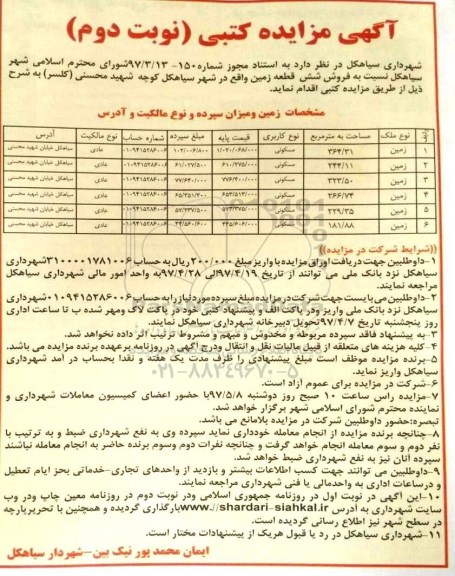 آگهی مزایده کتبی (نوبت دوم)
شهرداری سیاهکل در نظر دارد به استناد مجوز شماره۱۵۰- ۹۷/۳/۱۳شورای محترم اسلامی شهر
سیاهکل نسبت به فروش شش قطعه زمین واقع در شهر سیاهکل کوچه شهید محسنی (کلسر) به شرح
ذیل از طریق مزایده کتبی اقدام نماید.
مشخصات زمین ومیزان سپرده و نوع مالکیت و آدرس
نوع ملک مساحت به مترمربع نوع کاربری قیمت پایه مبلغ سپرده شماره حساب نوع مالکیت آدرس
۱ زمین ۳۶۴/۳۱ مسکونی ۱/۰۲۰/۰۶۸/۰۰۰ ۱۰۲/۰۰۶/۸۰۰ ۰۱۰۹۴۱۵۲۸۶۰۰۶ عادی سیاهکل خیابان شهید محسنی
۲ زمین ۲۴۴/۱۱ مسکونی ۶۱۰/۲۷۵/۰۰۰ ۶۱/۰۲۷/۵۰۰ ۰۱۰۹۴۱۵۲۸۶۰۰۶ عادی سیاهکل خیابان شهید محسنی
۳ زمین ۳۲۳/۵۰ مسکونی ۷۷۶/۴۰۰/۰۰۰ ۷۷/۶۴۰/۰۰۰ ۰۱۰۹۴۱۵۲۸۶۰۰۶ عادی سیاهکل خیابان شهید محسنی
۴ زمین ۲۶۶/۷۴ مسکونی ۶۵۳/۵۱۳/۰۰۰ ۶۵/۳۵۱/۳۰۰ ۰۱۰۹۴۱۵۲۸۶۰۰۶ عادی سیاهکل خیابان شهید محسنی
۵ زمین ۲۲۹/۳۵ مسکونی ۵۷/۳۳۷/۵۰۰ ۰۱۰۹۴۱۵۲۸۶۰۰۶ عادی سیاهکل خیابان شهید محسنی
۶ زمین ۱۸۱/۸۸ مسکونی ۴۴۵/۶۰۶/۰۰۰ ۴۴/۵۶۰/۶۰۰ ۰۱۰۹۴۱۵۲۸۶۰۰۶ عادی سیاهکل خیابان شهید محسنی
((شرایط شرکت در مزایده))
۱-داوطلبین جهت دریافت اوراق مزایده با واریز مبلغ ۲۰۰/۰۰۰ریال به حساب ۳۱۰۰۰۰۱۷۸۱۰۰۶شهرداری
سیاهکل نزد بانک ملی می توانند از تاریخ ۹۷/۴/۱۹الی ۹۷/۴/۲۸به واحد امور مالی شهرداری سیاهکل
مراجعه نمایند.
۲-داوطلبین می بایست جهت شرکت در مزایده مبلغ سپرده مورد نیاز را به حساب ۰۱۰۹۴۱۵۲۸۶۰۰۶شهرداری
سیاهکل نزد بانک ملی واریز ودر پاکت الف و پیشنهاد کتبی خود در پاکت لاک ومهر شده ب تا ساعت اداری
روز پنجشنبه تاریخ ۹۷/۴/۷تحویل دبیرخانه شهرداری سیاهکل نمایند.
۳-به پیشنهاد فاقد سپرده مربوطه و مخدوش و مبهم و مشروط ترتیب اثر داده نخواهد شد.
۴-کلیه هزینه های متعلقه از قبیل مالیات نقل و انتقال ودرج آگهی در روزنامه برعهده برنده مزایده می باشد.
۵-برنده مزایده موظف است مبلغ پیشنهادی را ظرف مدت یک هفته و نقدا بحساب در آمد شهرداری
سیاهکل واریز نماید.
۶-شرکت در مزایده برای عموم آزاد است.
۷-مزایده راس ساعت ۱۰ صبح روز دوشنبه ۹۷/۵/۸با حضور اعضای کمیسیون معاملات شهرداری و
نماینده محترم شورای اسلامی شهر برگزار خواهد شد.
تبصره:حضور داوطلبین شرکت در مزایده بلامانع می باشد.
۸-چنانچه برنده مزایده از انجام معامله خودداری نماید سپرده وی به نفع شهرداری ضبط و به ترتیب با
نفر دوم و سوم معامله انجام خواهد گرفت و چنانچه نفرات دوم وسوم برنده حاضر به انجام معامله نباشند
سپرده آنان نیز به نفع شهرداری ضبط خواهد شد.
۹-داوطلبین می توانند جهت کسب اطلاعات بیشتر و بازدید از واحدهای تجاری-خدماتی بجز ایام تعطیل
و درساعات اداری به واحدمالی یا فنی شهرداری مراجعه نمایند.
۱۰-این آگهی در نوبت اول در روزنامه جمهوری اسلامی ودر نوبت دوم در روزنامه معین چاپ ودر وب
سایت شهرداری به آدرس www.//shardari-siahkal.irبارگذاری گردیده و همچنین با تحریرپارچه
در سطح شهر نیز اطلاع رسانی گردیده است.
۱۱-شهرداری سیاهکل در رد یا قبول هریک از پیشنهادات مختار است.
ایمان محمد پور نیک بین-شهردار سیاهکل
۰۲۱-۸۸۳۴۹۶۷۰-۵